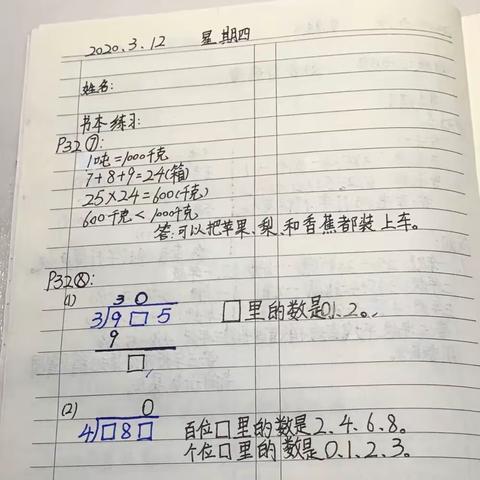 2020.3.12 星期四
姓名:
书本练习:
P32⑦:
1吨=1000千克
7+8+9=24(箱)
25×24=600(千克)
600千克<1000千克
答:可以把苹果、梨、和香蕉都装上车。
P32⑧:
(1)
3 0
3)9□5 □里的数是0.1.2。
9
□
(2)
0
4)□8□ 百位□里的数是2.4.6.8。
个位□里的数是0.1.2.3。